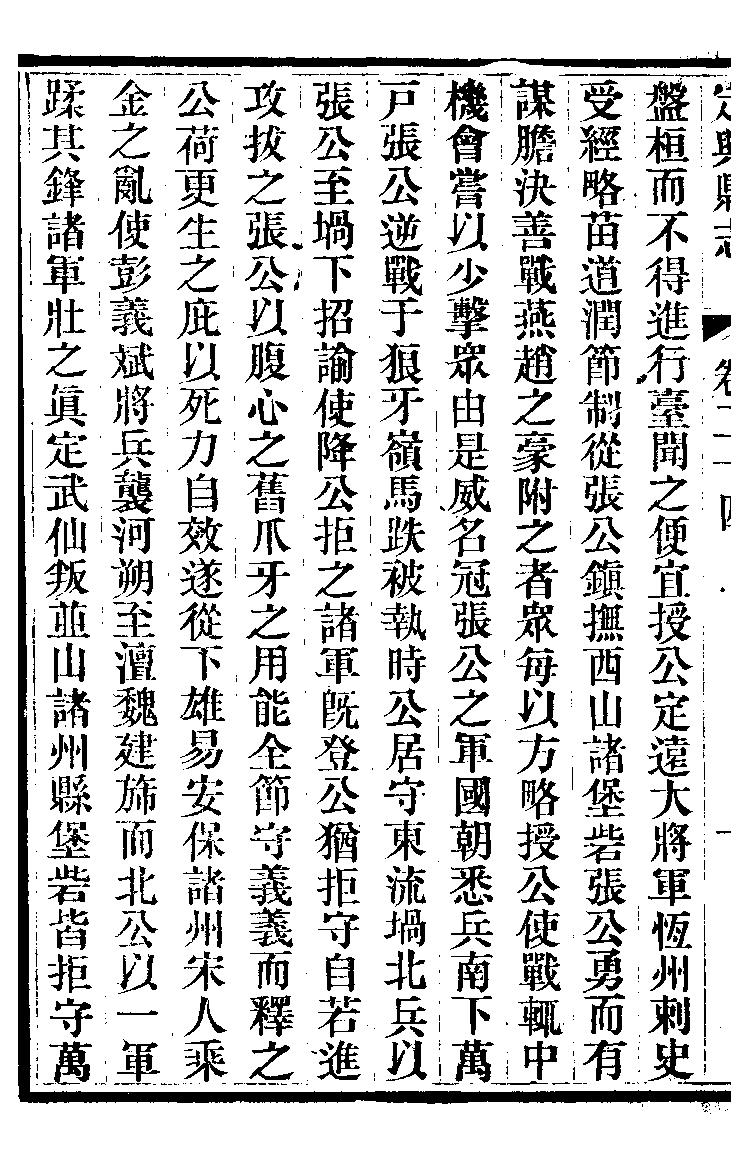 定興縣志 卷二十四
盤桓而不得進行臺聞之便宜授公定遠大將軍恆州刺史
受經略苗道潤節制從張公鎮撫西山諸堡砦張公勇而有
謀膽決善戰燕趙之豪附之者眾每以方略授公使戰輒中
機會嘗以少擊眾由是威名冠張公之軍國朝悉兵南下萬
戸張公逆戰于狼牙嶺馬跌被執時公居守東流堝北兵以
張公至堝下招諭使降公拒之諸軍既登公猶拒守自若進
攻拔之張公以腹心之舊爪牙之用能全節守義義而釋之
公荷更生之庇以死力自效遂從下雄易安保諸州宋人乘
金之亂使彭義斌將兵襲河朔至澶魏建旆而北公以一軍
蹂其鋒諸軍壯之眞定武仙叛並山諸州縣堡砦皆拒守萬